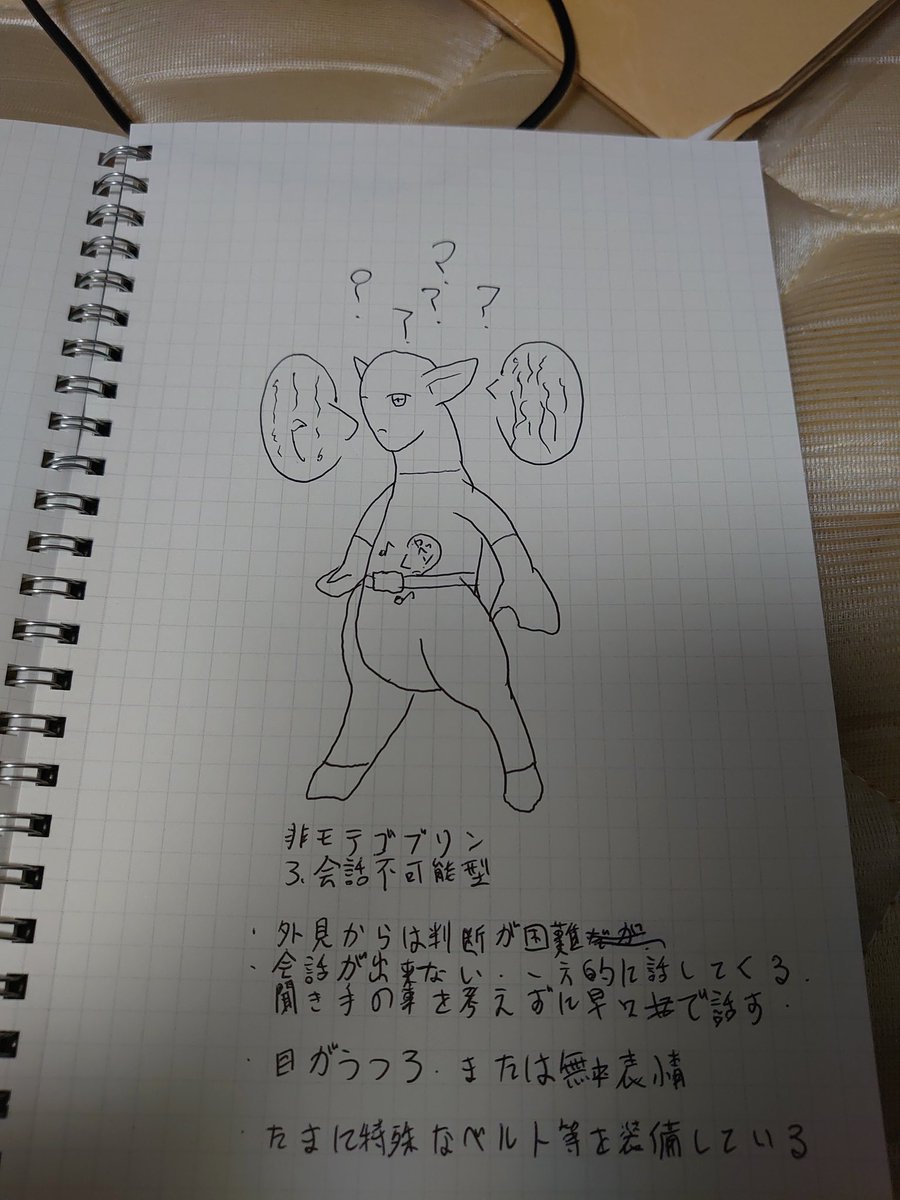 ? ? ? ? ?
非モテゴブリン
3.会話不可能型
・外見からは判断が困難だが
・会話が出来ない.一方的に話してくる.
聞き手の事を考えずに早口で話す.
・目がうつろ.または無表情
たまに特殊なベルト等を装備している